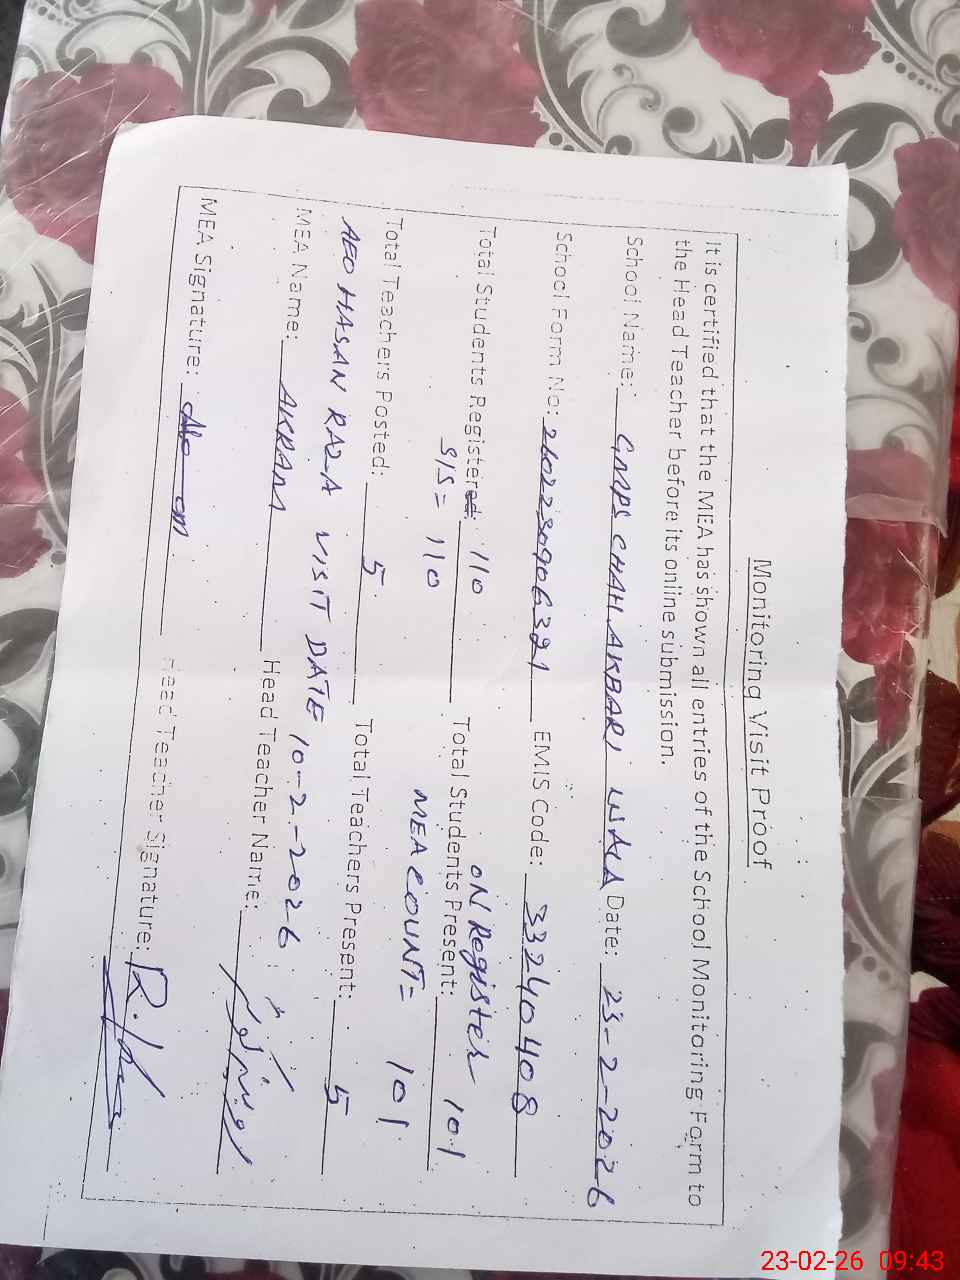 Monitoring Visit Proof
It is certified that the MEA has shown all entries of the School Monitoring Form to
the Head Teacher before its online submission.
School Name: GMPS CHAH AKBARI WALA Date: 23-2-2026
School Form No: 2602230906321 EMIS Code: 33240408
Total Students Registered: 110 Total Students Present: ON Register 101
SIS = 110 MEA COUNT = 101
Total Teachers Posted: 5 Total Teachers Present: 5
AEO HASAN RAZA VISIT DATE 10-2-2026
MEA Name: AKRAM Head Teacher Name:
MEA Signature: Head Teacher Signature:
23-02-26 09:43